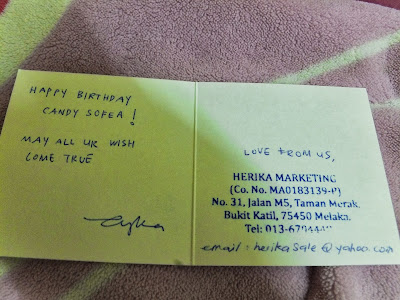 HAPPY BIRTHDAY
CANDY SOFEA!
MAY ALL UR WISH
COME TRUE
LOVE FROM US,
HERIKA MARKETING
(Co. No. MA0183139-P)
No. 31, Jalan M5, Taman Merak,
Bukit Katil, 75450 Melaka.
Tel:
email : herikasale@yahoo.com